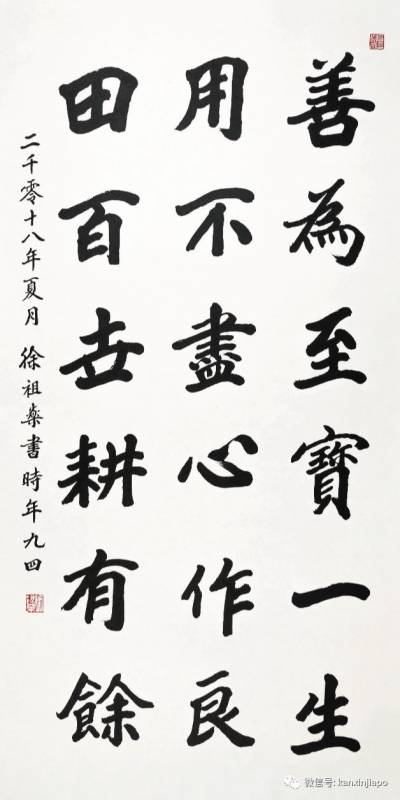 善為至寶一生
用不盡心作良
田百世耕有餘
二千零十八年夏月 徐祖燊書時年九四
微信号: kanxinjiapo